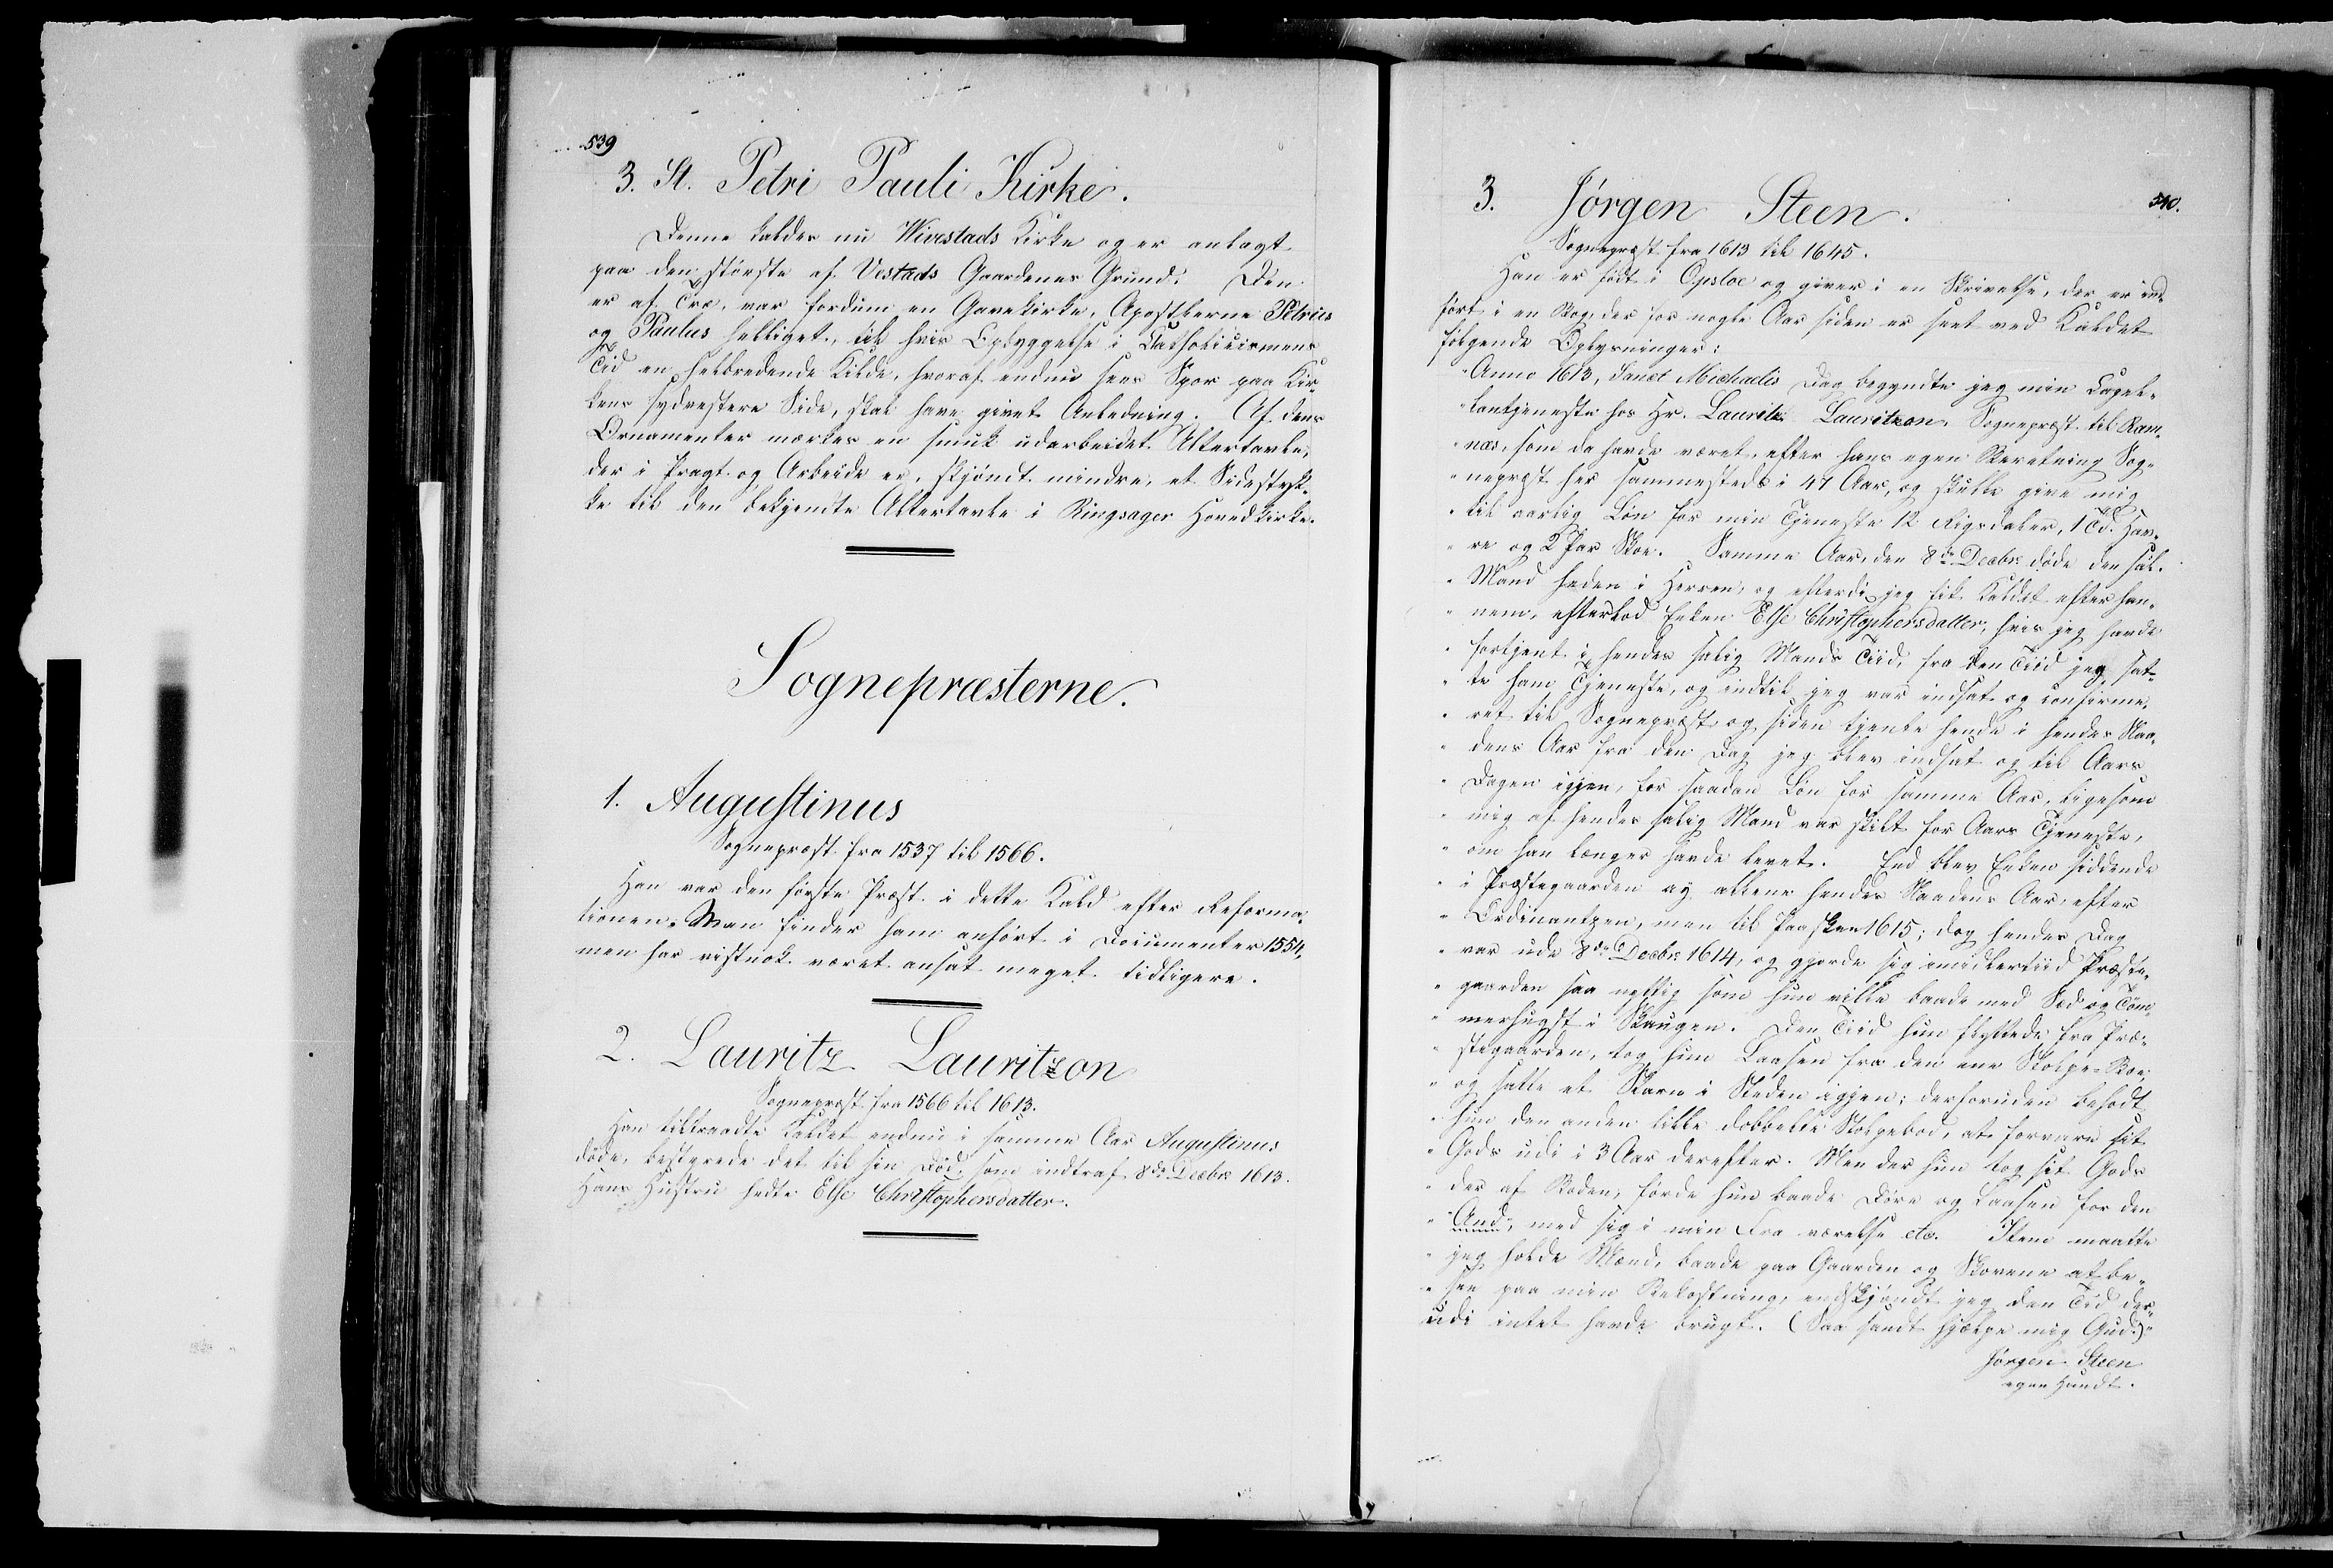 539
3. St. Petri Pauli Kirke.
Denne kaldes nu Wivestads Kirke og er anlagt
paa den største af Vestads Gaardenes Grund. Den
er af Træ, var fordum en Gavekirke, Apostlerne Petrus
og Paulus helliget, til hvis Opbyggelse i Catholicismens
Tid en helbredende Kilde, hvoraf endnu sees Spor paa Kir-
kens sydvestere Side, skal have givet Anledning. Af dens
Ornamenter mærkes en smuk udarbeidet Altertavle,
der i Pragt og Arbeide er, skjøndt mindre, et Sidestyk-
ke til den bekjendte Altertavle i Ringsager Hovedkirke.
Sognepræsterne.
1. Augustinus
Sognepræst fra 1537 til 1566.
Han var den første Præst i dette Kald efter Reforma-
tionen. Man finder ham anført i Documenter 1554,
men har vistnok været ansat meget tidligere.
2. Lauritz Lauritzon
Sognepræst fra 1566 til 1613.
Han tiltraadte Kaldet endnu i samme Aar Augustinus
døde, bestyrede det til sin Død, som indtraf 8de Decbr 1613.
Hans Hustru hedte Else Christophersdatter.
3. Jørgen Steen.
540.
Sognepræst fra 1613 til 1645.
Han er født i Opsloe og giver i en Skrivelse, der er ind-
ført i en Bog, der for nogle Aar siden er seet ved Kaldet
følgende Oplysninger:
"Anno 1613, Sanct Michaelis Dag begyndte jeg min Capel-
"lantjeneste hos Hr. Lauritz Lauritzon, Sognepræst til Ram-
"næs, som da havde været, efter hans egen Beretning Sog-
"nepræst her sammesteds i 47 Aar, og skulle give mig
"til aarlig Løn for min Tjeneste 12 Rigsdaler, 1 Td. Hav-
"re og 2 Par Skoe. Samme Aar, den 8de Decbr døde den sal.
"Mand heden i Herren, og efterdi jeg fik Kaldet efter han-
"nem, efterlod Enken Else Christophersdatter, hvis jeg havde
"fortjent i hendes salig Mands Tiid, fra den Tiid jeg sat-
"te ham Tjeneste, og indtil jeg var indsat og confirme-
"ret til Sognepræst og siden tjente hende i hendes Naa-
"dens Aar fra den Dag jeg blev indsat og til Aars
"Dagen igjen, for saadan Løn for samme Aar, ligesom
"mig af hendes salig Mand var skikt for Aars Tjeneste,
"om han længer havde levet. End blev Enken siddende
"i Præstegaarden ej allene hendes Naadens Aar, efter
"Ordinantzen, men til Paasken 1615; dog hendes Dag
"var ude 8de Decbr 1614, og gjorde sig imidlertiid Præste-
"gaarden saa nyttig som hun vilde baade med Sæd og Tøm-
"merhugst i Skougen. Den Tiid hun flyttede fra Præ-
"stegaarden, tog hun Laasen fra den ene Stolpe-Boe,
"og satte et Skarn i Steden igjen; derforuden beholdt
"hun den anden lille dobbelte Stolpebod, at forvare sit
"Gods udi i 3 Aar derefter. Men der hun tog sit Gods
"der af Boden, førde hun baade Døre og Laasen for den
"And, med sig i min Fra værelse etc. Item maatte
"jeg holde Mænd, baade paa Gaarden og Skovene at be-
"see paa min Bekostning, endskjøndt jeg den Tid der-
udi intet havde brugt. (Saa sandt hjælpe mig Gud.)"
Jørgen Steen
egen Handt.